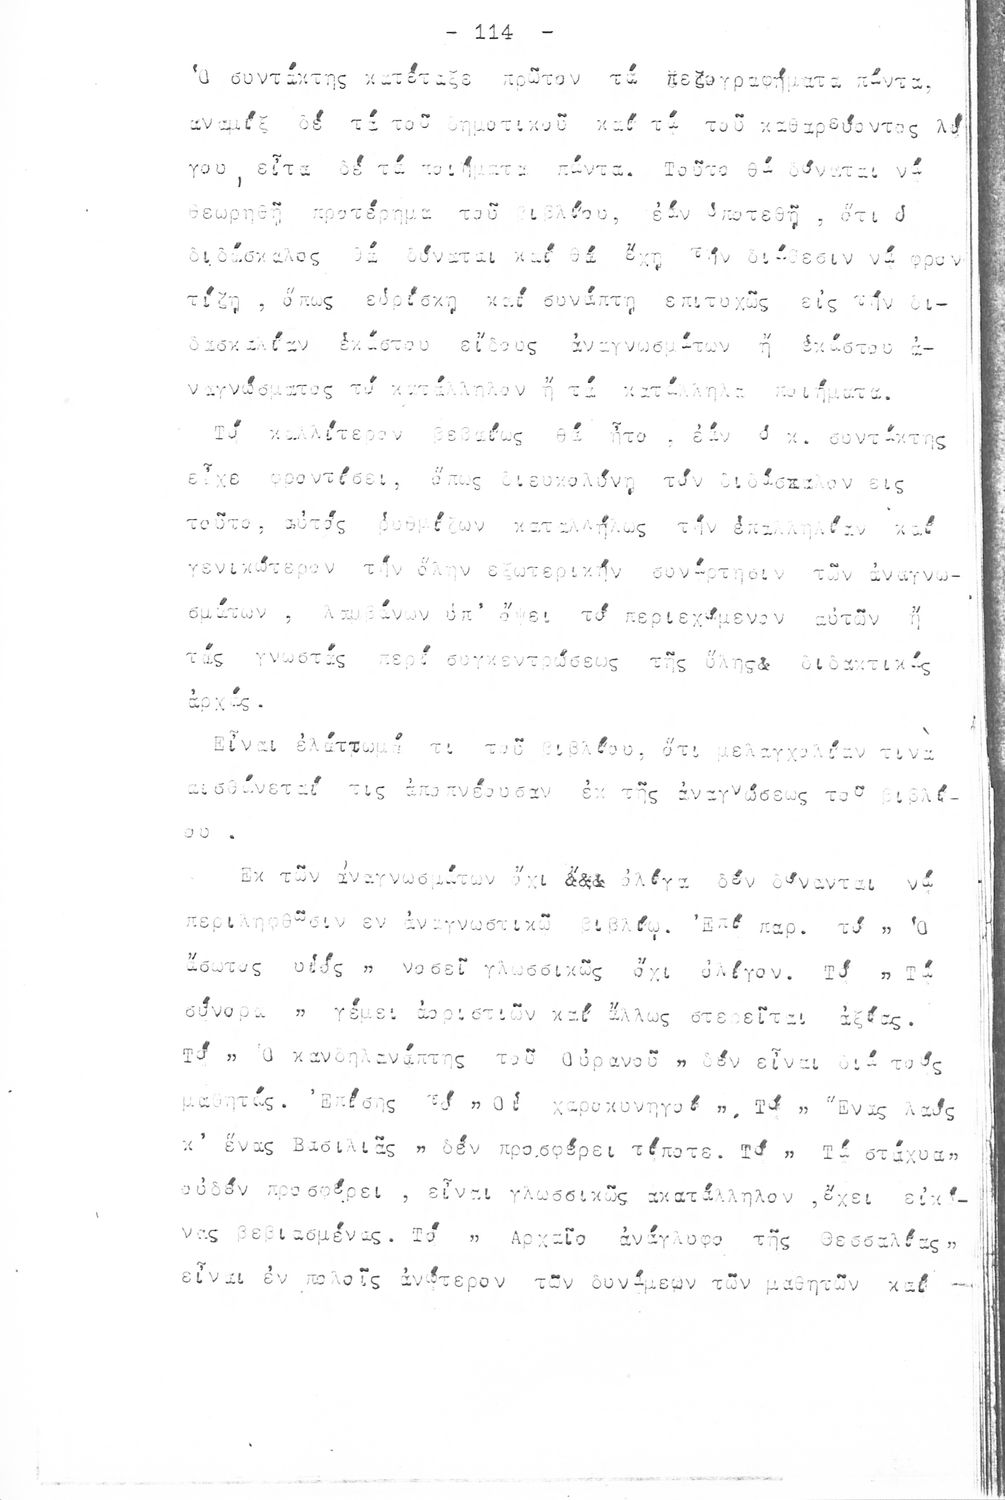 - 114 -
Ὁ συντάκτης κατέταξε πρῶτον τά πεζογραφήματα πάντα,
αναμίξ δέ τά τοῦ δημοτικοῦ καί τά τοῦ καθαρεύοντος λό
γου, εἶτα δέ τά ποιήματα πάντα. Τοῦτο θά δύναται νά
θεωρηθῆ προτέρημα τοῦ βιβλίου, ἐάν ὑποτεθῆ , ὅτι ὁ
διδάσκαλος θά δύναται καί θά ἔχη τήν διάθεσιν νά φρον
τίζη , ὅπως εὑρίσκη καί συνάπτη επιτυχῶς εἰς τήν δι-
δασκαλίαν ἑκάστου εἴδους ἀναγνωσμάτων ἤ ἑκάστου ἀ-
ναγνώσματος τό κατάλληλον ἤ τά κατάλληλα ποιήματα.
Τό καλλίτερον βεβαίως θά ἦτο , ἐάν ὁ κ. συντάκτης
εἶχε φροντίσει, ὅπως διευκολύνη τόν διδάσκαλον εις
τοῦτο, αὐτός ρυθμίζων καταλλήλως τήν ἐπαλληλίαν καί
γενικώτερον τήν ὅλην εξωτερικήν συνάρτησιν τῶν ἀναγνω-
σμάτων , λαμβάνων ὑπ' ὄψει τό περιεχόμενον αὐτῶν ἤ
τάς γνωστάς περί συγκεντρώσεως τῆς ὕλης& διδακτικάς
ἀρχάς.
Εἶναι ἐλάττωμά τι τοῦ βιβλίου, ὅτι μελαγχολίαν τινὰ
αισθάνεταί τις ἀποπνέουσαν ἐκ τῆς ἀναγνώσεως τοῦ βιβλί-
ου .
Εκ τῶν ἀναγνωσμάτων ὄχι ὀλίγα δέν δύνανται νά
περιληφθῶσιν εν ἀναγνωστικῶ βιβλίῳ. Ἐπί παρ. τό „ Ὁ
ἄσωτος υἱός „ νοσεῖ γλωσσικῶς ὄχι ὀλίγον. Τό „ Τά
σύνορα „ γέμει ἀοριστιῶν καί ἄλλως στερεῖται ἀξίας.
Τό „ Ὁ κανδηλανάπτης τοῦ Οὐρανοῦ „ δέν εἶναι διά τούς
μαθητάς. Ἐπίσης τό „ Οἱ χαροκυνηγοί „. Τό „ Ἕνας λαός
κ' ἕνας Βασιλιᾶς „ δέν προσφέρει τίποτε. Τό „ Τά στάχυα„
οὐδέν προσφέρει , εἶναι γλωσσικῶς ακατάλληλον ,ἔχει εἰκό-
νας βεβιασμένας. Τό „ Αρχαῖο ἀνάγλυφο τῆς Θεσσαλίας„
εἶναι ἐν πολοῖς ἀνώτερον τῶν δυνάμεων τῶν μαθητῶν καί —